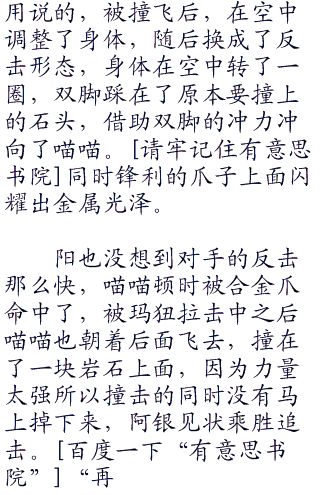 用说的，被撞飞后，在空中
调整了身体，随后换成了反
击形态，身体在空中转了一
圈，双脚踩在了原本要撞上
的石头，借助双脚的冲力冲
向了喵喵。[请牢记住有意思
书院]同时锋利的爪子上面闪
耀出金属光泽。
阳也没想到对手的反击
那么快，喵喵顿时被合金爪
命中了，被玛狃拉击中之后
喵喵也朝着后面飞去，撞在
了一块岩石上面，因为力量
太强所以撞击的同时没有马
上掉下来，阿银见状乘胜追
击。[百度一下“有意思书
院”]“再